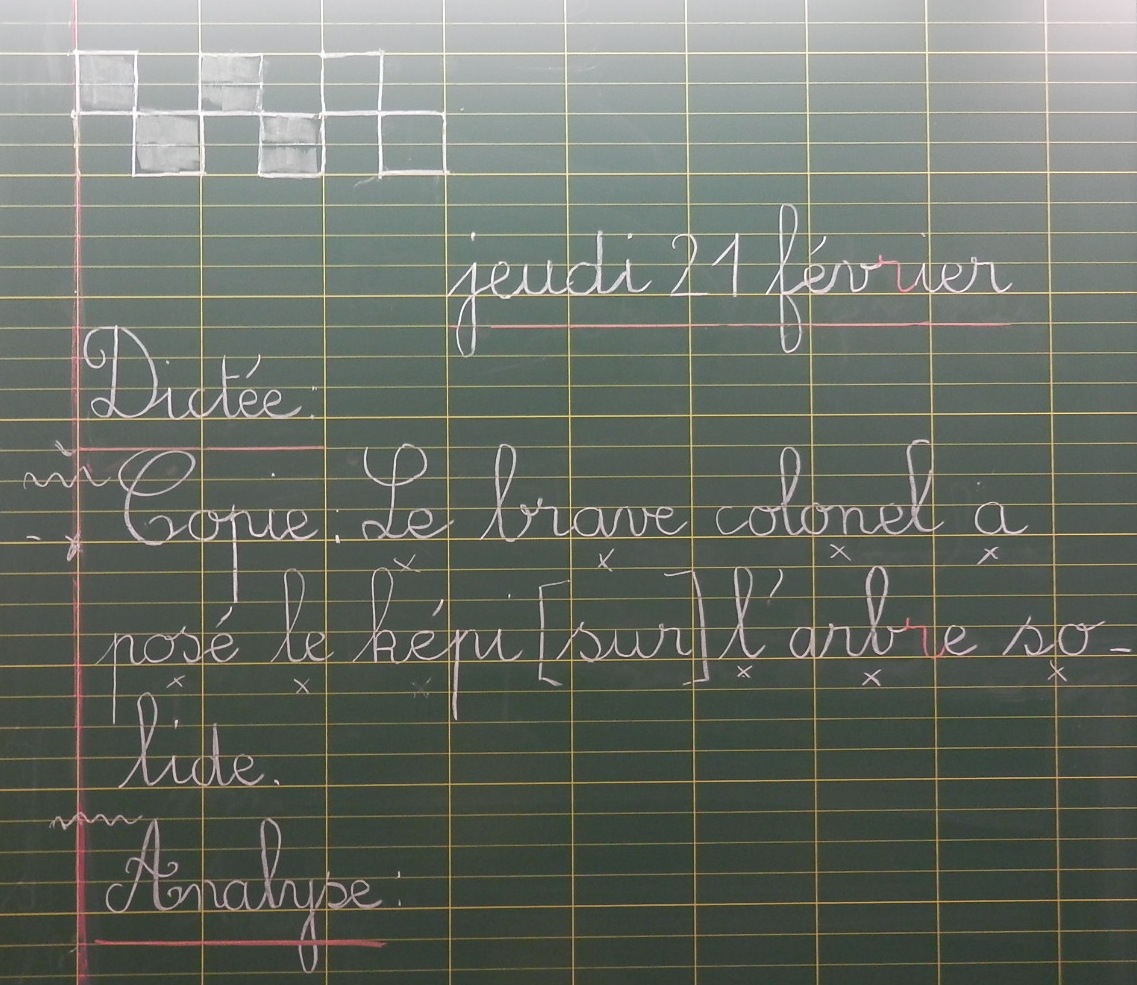 jeudi 21 février
Dictée:
Copie: Le brave colonel a
posé le képi [sur] l'arbre so-
lide.
Analyse: